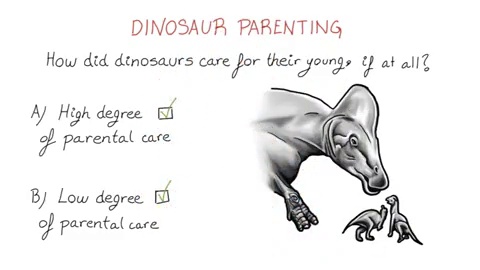 DINOSAUR PARENTING
How did dinosaurs care for their young, if at all?
A) High degree
of parental care
B) Low degree
of parental care